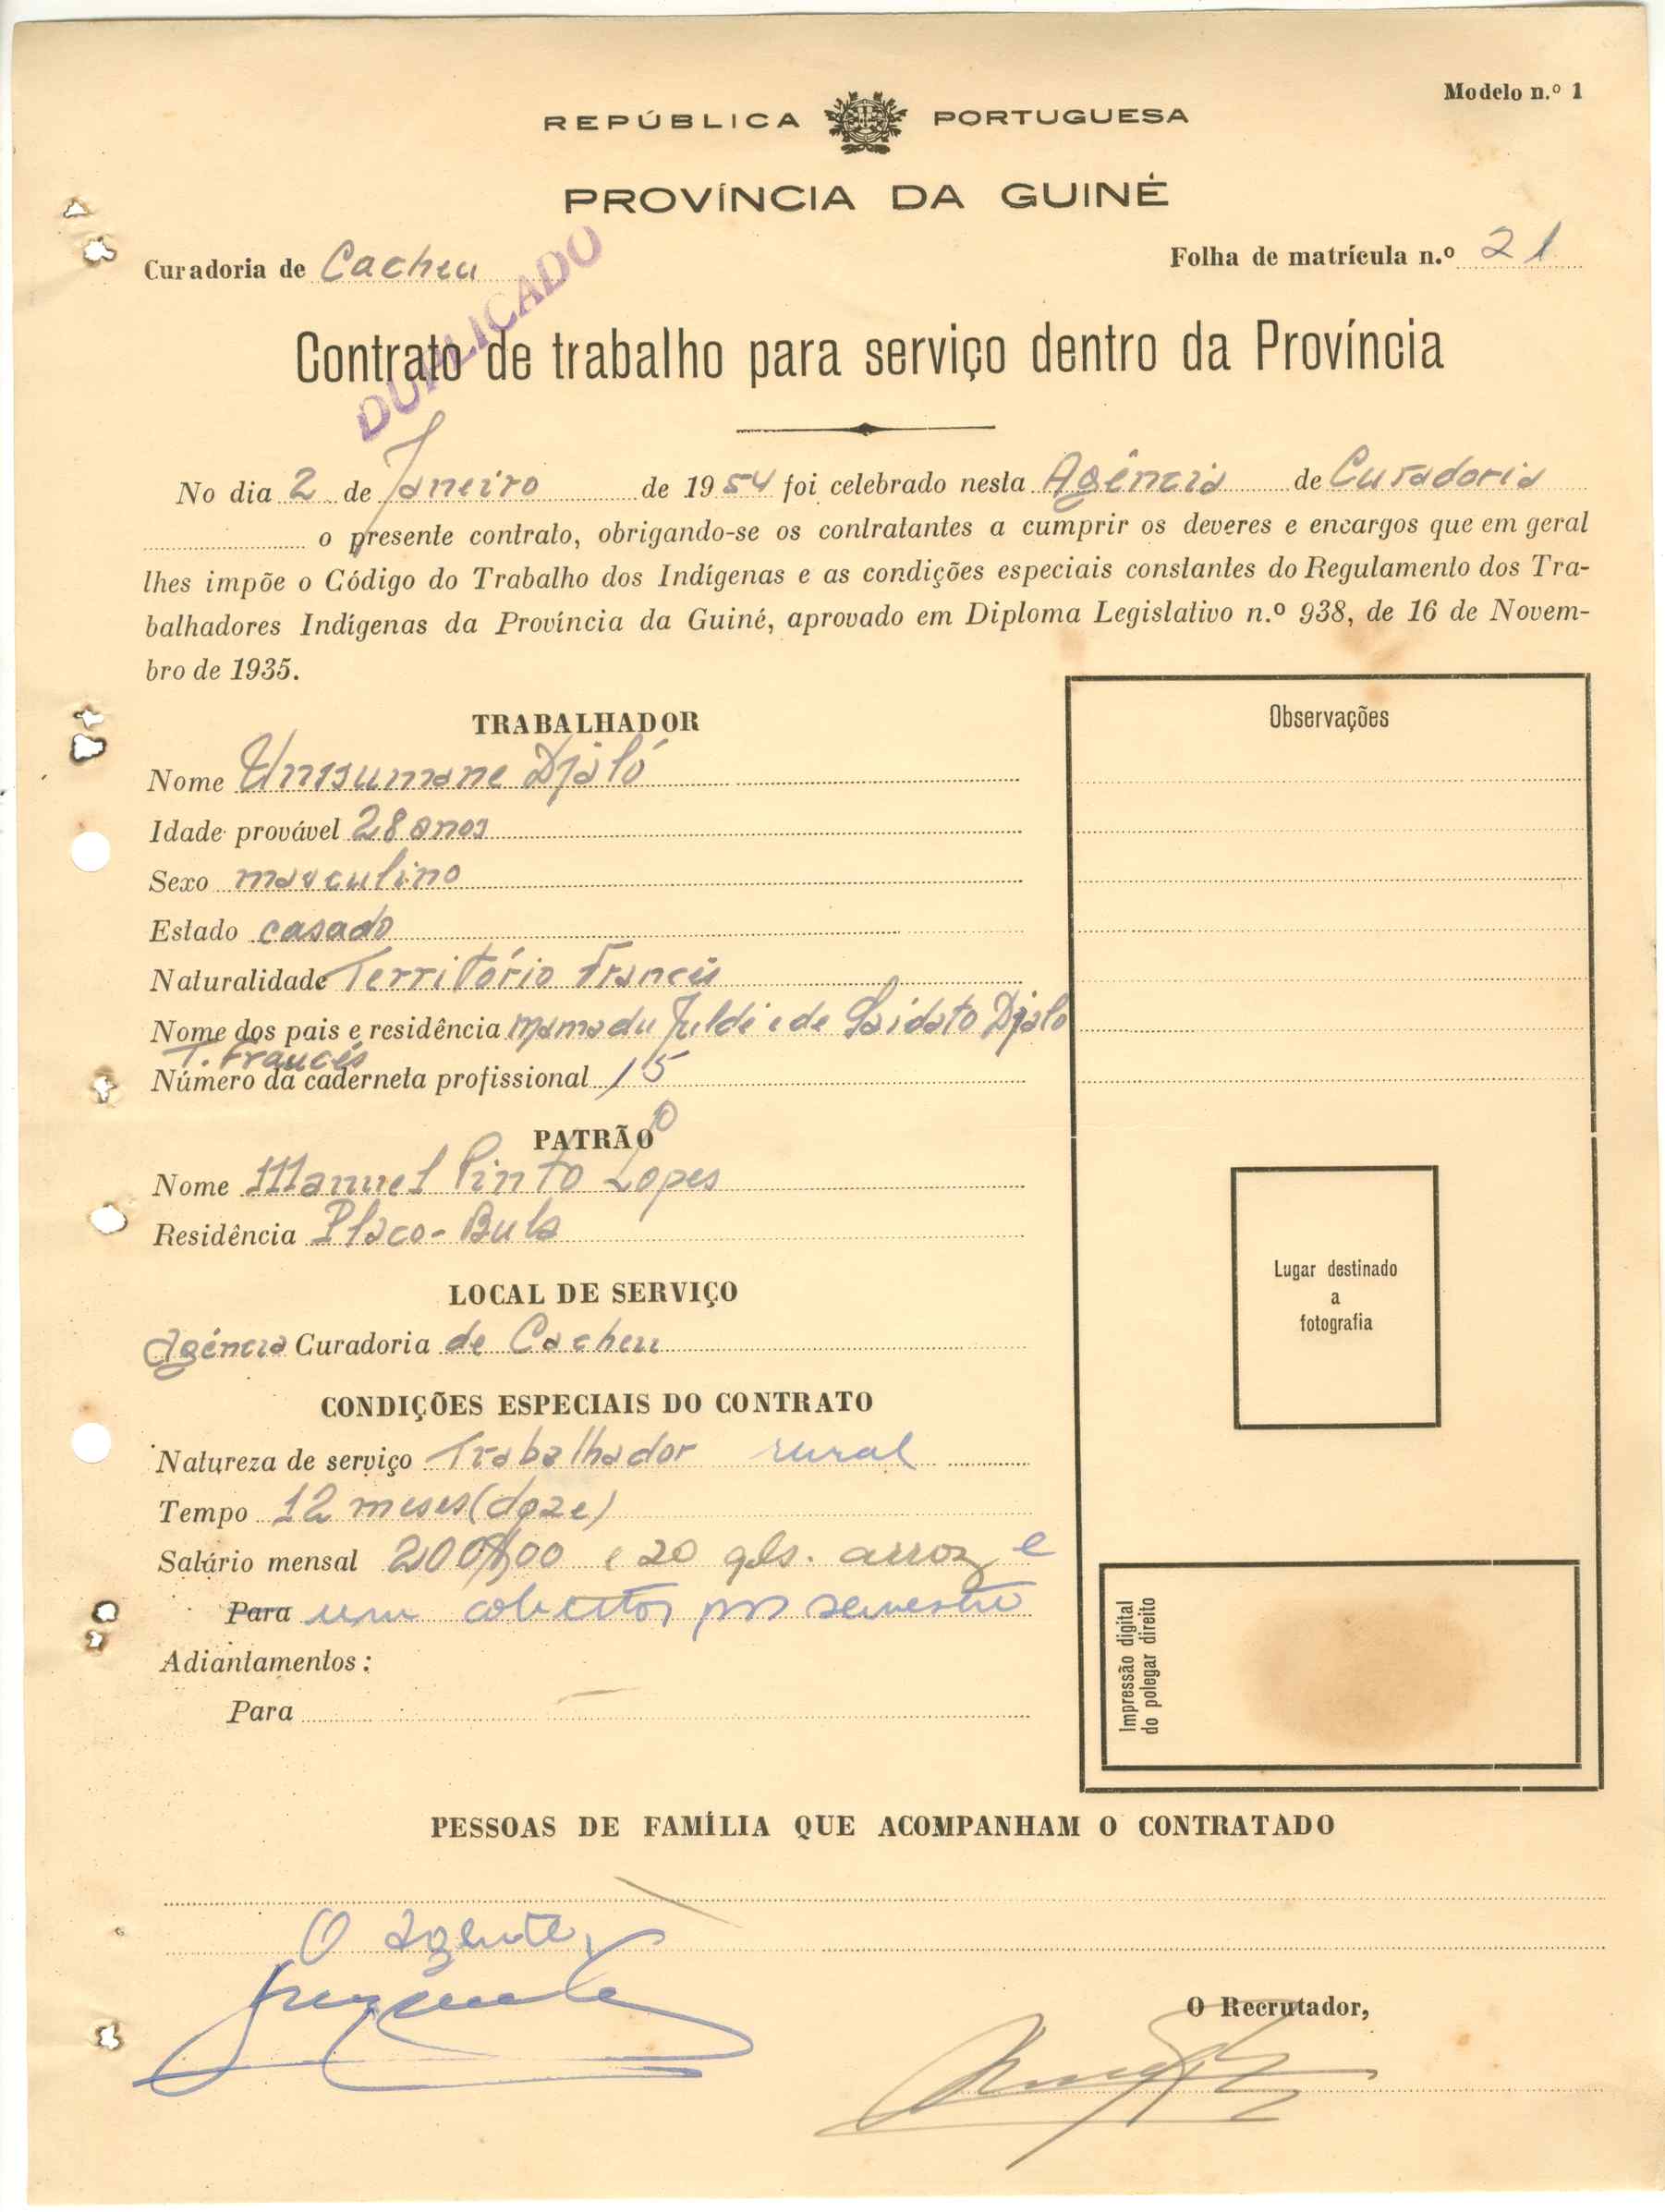 Modelo n.º 1
REPÚBLICA PORTUGUESA
PROVÍNCIA DA GUINÉ
Curadoria de Cacheu
Folha de matrícula n.º 21
DUPLICADO
Contrato de trabalho para serviço dentro da Província
No dia 2 de Janeiro de 1954 foi celebrado nesta Agência de Curadoria
o presente contrato, obrigando-se os contratantes a cumprir os deveres e encargos que em geral
lhes impõe o Código do Trabalho dos Indígenas e as condições especiais constantes do Regulamento dos Tra-
balhadores Indígenas da Província da Guiné, aprovado em Diploma Legislativo n.º 938, de 16 de Novem-
bro de 1935.
TRABALHADOR
Observações
Nome Djaló
Idade provável 28 anos
Sexo masculino
Estado casado
Naturalidade Território Francês
Nome dos pais e residência Mamadu Juldé e de Saidato Djaló
T. Francês
Número da caderneta profissional 15
PATRÃO
Nome Manuel Pinto Lopes
Residência Placo-Bula
LOCAL DE SERVIÇO
Agência Curadoria de Cacheu
Lugar destinado
a
fotografia
CONDIÇÕES ESPECIAIS DO CONTRATO
Natureza de serviço Trabalhador rural
Tempo 12 meses (doze)
Salário mensal 200$00 e 20 qls. arroz e
Para um cobertor por semestre
Adiantamentos:
Para
Impressão digital
do polegar direito
PESSOAS DE FAMÍLIA QUE ACOMPANHAM O CONTRATADO
O agente,
O Recrutador,